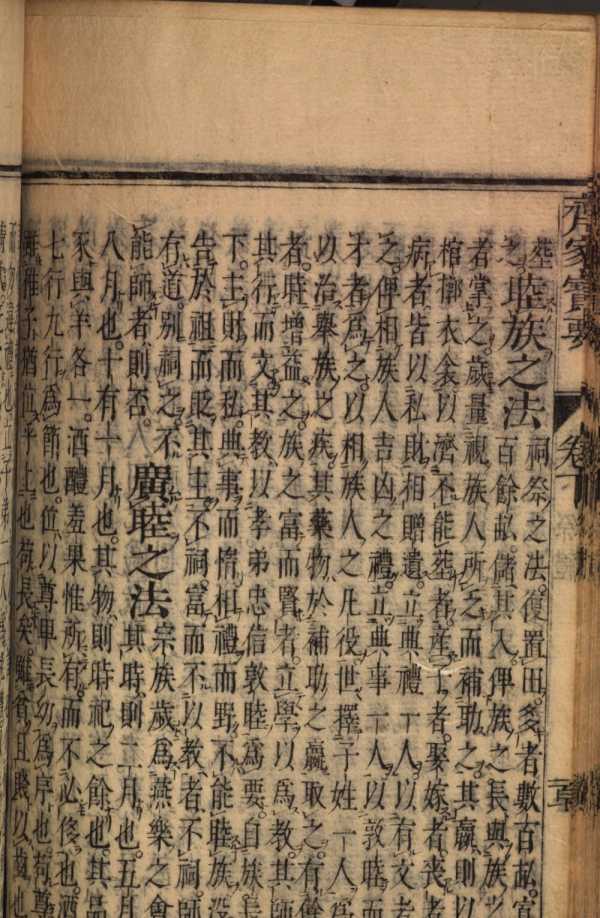 齊家寶要
卷下
葬
之。睦族之法 祠祭之法。復置田。多者數百畝。寡
百餘畝。儲其入。俾族之長與族之
者掌之。歲量視族人所乏而補助之。其贏則以
棺槨衣衾。以濟不能葬者。產子者。娶嫁者。喪者
病者。皆以私財相贈遺。立典禮一人。以有文者
之。俾相族人吉凶之禮。立典事一人。以敦睦而
才者為之。以相族人之凡役。世擇子姓一人為
以治舉族之疾。其藥物於補助之贏取之。有餘
者。時增益之。族之富而賢者。立學以為教。其師
其行而文。其教以孝弟忠信敦睦為要。自族長
下。主財而私。典事而惰。相禮而野。不能睦族。沒
告於祖而貶其主。不祠。富而不以教者。不祠。師
有道。別祠之。不
能師者則否。廣睦之法 宗族歲為燕樂之會
其時則二月也。五月
八月也。十有一月也。其物則時祀之餘也。其品
豕與羊各一。酒醴羞果惟所有而不必侈也。酒
七行九行為節也。位以尊卑長幼為序也。苟尊
雖稚子猶位乎上也。苟長矣。雖貧且賤以齒也